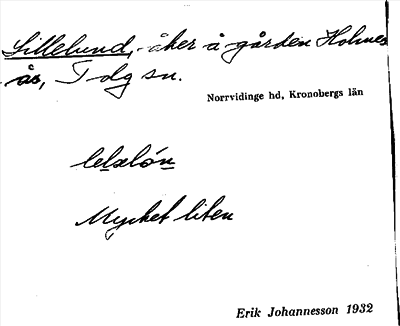 Lillelund, åker å gården Holmes
ås, T dg sn.
Norrvidinge hd, Kronobergs län
Mycket liten
Erik Johannesson 1932